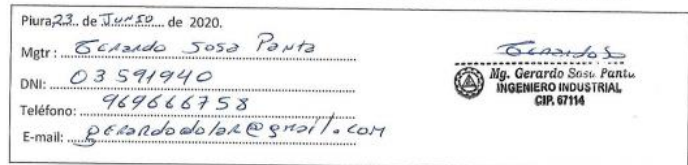 Piura, 23.. de Junio.... de 2020.
Mgtr: Gerardo Sosa Panta
DNI: 03591940
Teléfono: 969666758
E-mail: gerardodolar@gmail.com
Gerardo S
Mg. Gerardo Sosa Panta
INGENIERO INDUSTRIAL
CIP. 67114